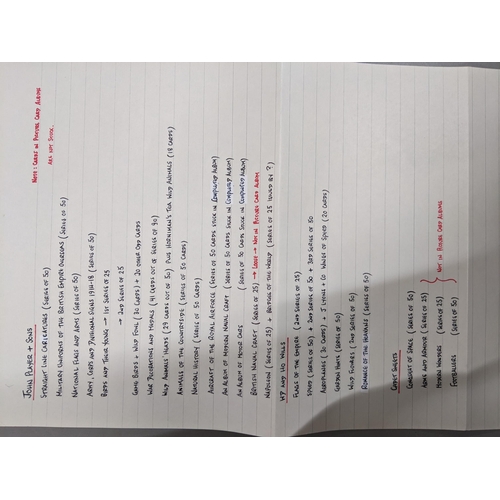 JOHN PLAYER + SONS
NOTE: CARDS IN PICTURE CARD ALBUMS
ARE NOT STUCK.
STRAIGHT LINE CARICATURES (SERIES OF 50)
MILITARY UNIFORMS OF THE BRITISH EMPIRE OVERSEAS (SERIES OF 50)
NATIONAL FLAGS AND ARMS (SERIES OF 50)
ARMY, CORPS AND DIVISIONAL SIGNS 1914-18 (SERIES OF 50)
BIRDS AND THEIR YOUNG → 1ST SERIES OF 25
→ 2ND SERIES OF 25
GAME BIRDS + WILD FOWL (30 CARDS) + 20 OTHER ODD CARDS
WAR DECORATIONS AND MEDALS (41 CARDS OUT OF SERIES OF 90)
WILD ANIMALS HEADS (29 CARDS OUT OF 50) PLUS HORNIMAN'S TEA WILD ANIMALS (18 CARDS)
ANIMALS OF THE COUNTRYSIDE (SERIES OF 50 CARDS)
NATURAL HISTORY (SERIES OF 50 CARDS)
AIRCRAFT OF THE ROYAL AIR FORCE (SERIES OF 50 CARDS STUCK IN COMPLETED ALBUM)
AN ALBUM OF MODERN NAVAL CRAFT (SERIES OF 50 CARDS STUCK IN COMPLETED ALBUM)
AN ALBUM OF MOTOR CARS (SERIES OF 50 CARDS STUCK IN COMPLETED ALBUM)
BRITISH NAVAL CRAFT (SERIES OF 25) → LOOSE → NOT IN PICTURE CARD ALBUM
NAPOLEON (SERIES OF 25) + BRIDGES OF THE WORLD (SERIES OF 25 ISSUED BY ?)
WD AND HO WILLS
FLAGS OF THE EMPIRE (2ND SERIES OF 25)
SPEED (SERIES OF 50) + 2ND SERIES OF 50 + 3RD SERIES OF 50
AEROPLANES (20 CARDS) + J LYONS + CO WINGS OF SPEED (20 CARDS)
GARDEN HINTS (SERIES OF 50)
WILD FLOWERS (SERIES OF 50)
ROMANCE OF THE HEAVENS (SERIES OF 50)
CADET SWEETS
CONQUEST OF SPACE (SERIES OF 50)
ARMS AND ARMOUR (SERIES OF 25)
MODERN WONDERS (SERIES OF 25)
FOOTBALLERS (SERIES OF 50)
NOT IN PICTURE CARD ALBUMS